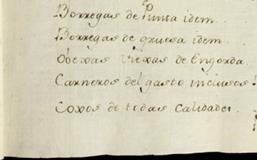 Borregas de Punta idem
Borregas de gruesa idem
Obexas viexas de Engorda
Carneros del gasto inclusos
Coxos de todas Calidades